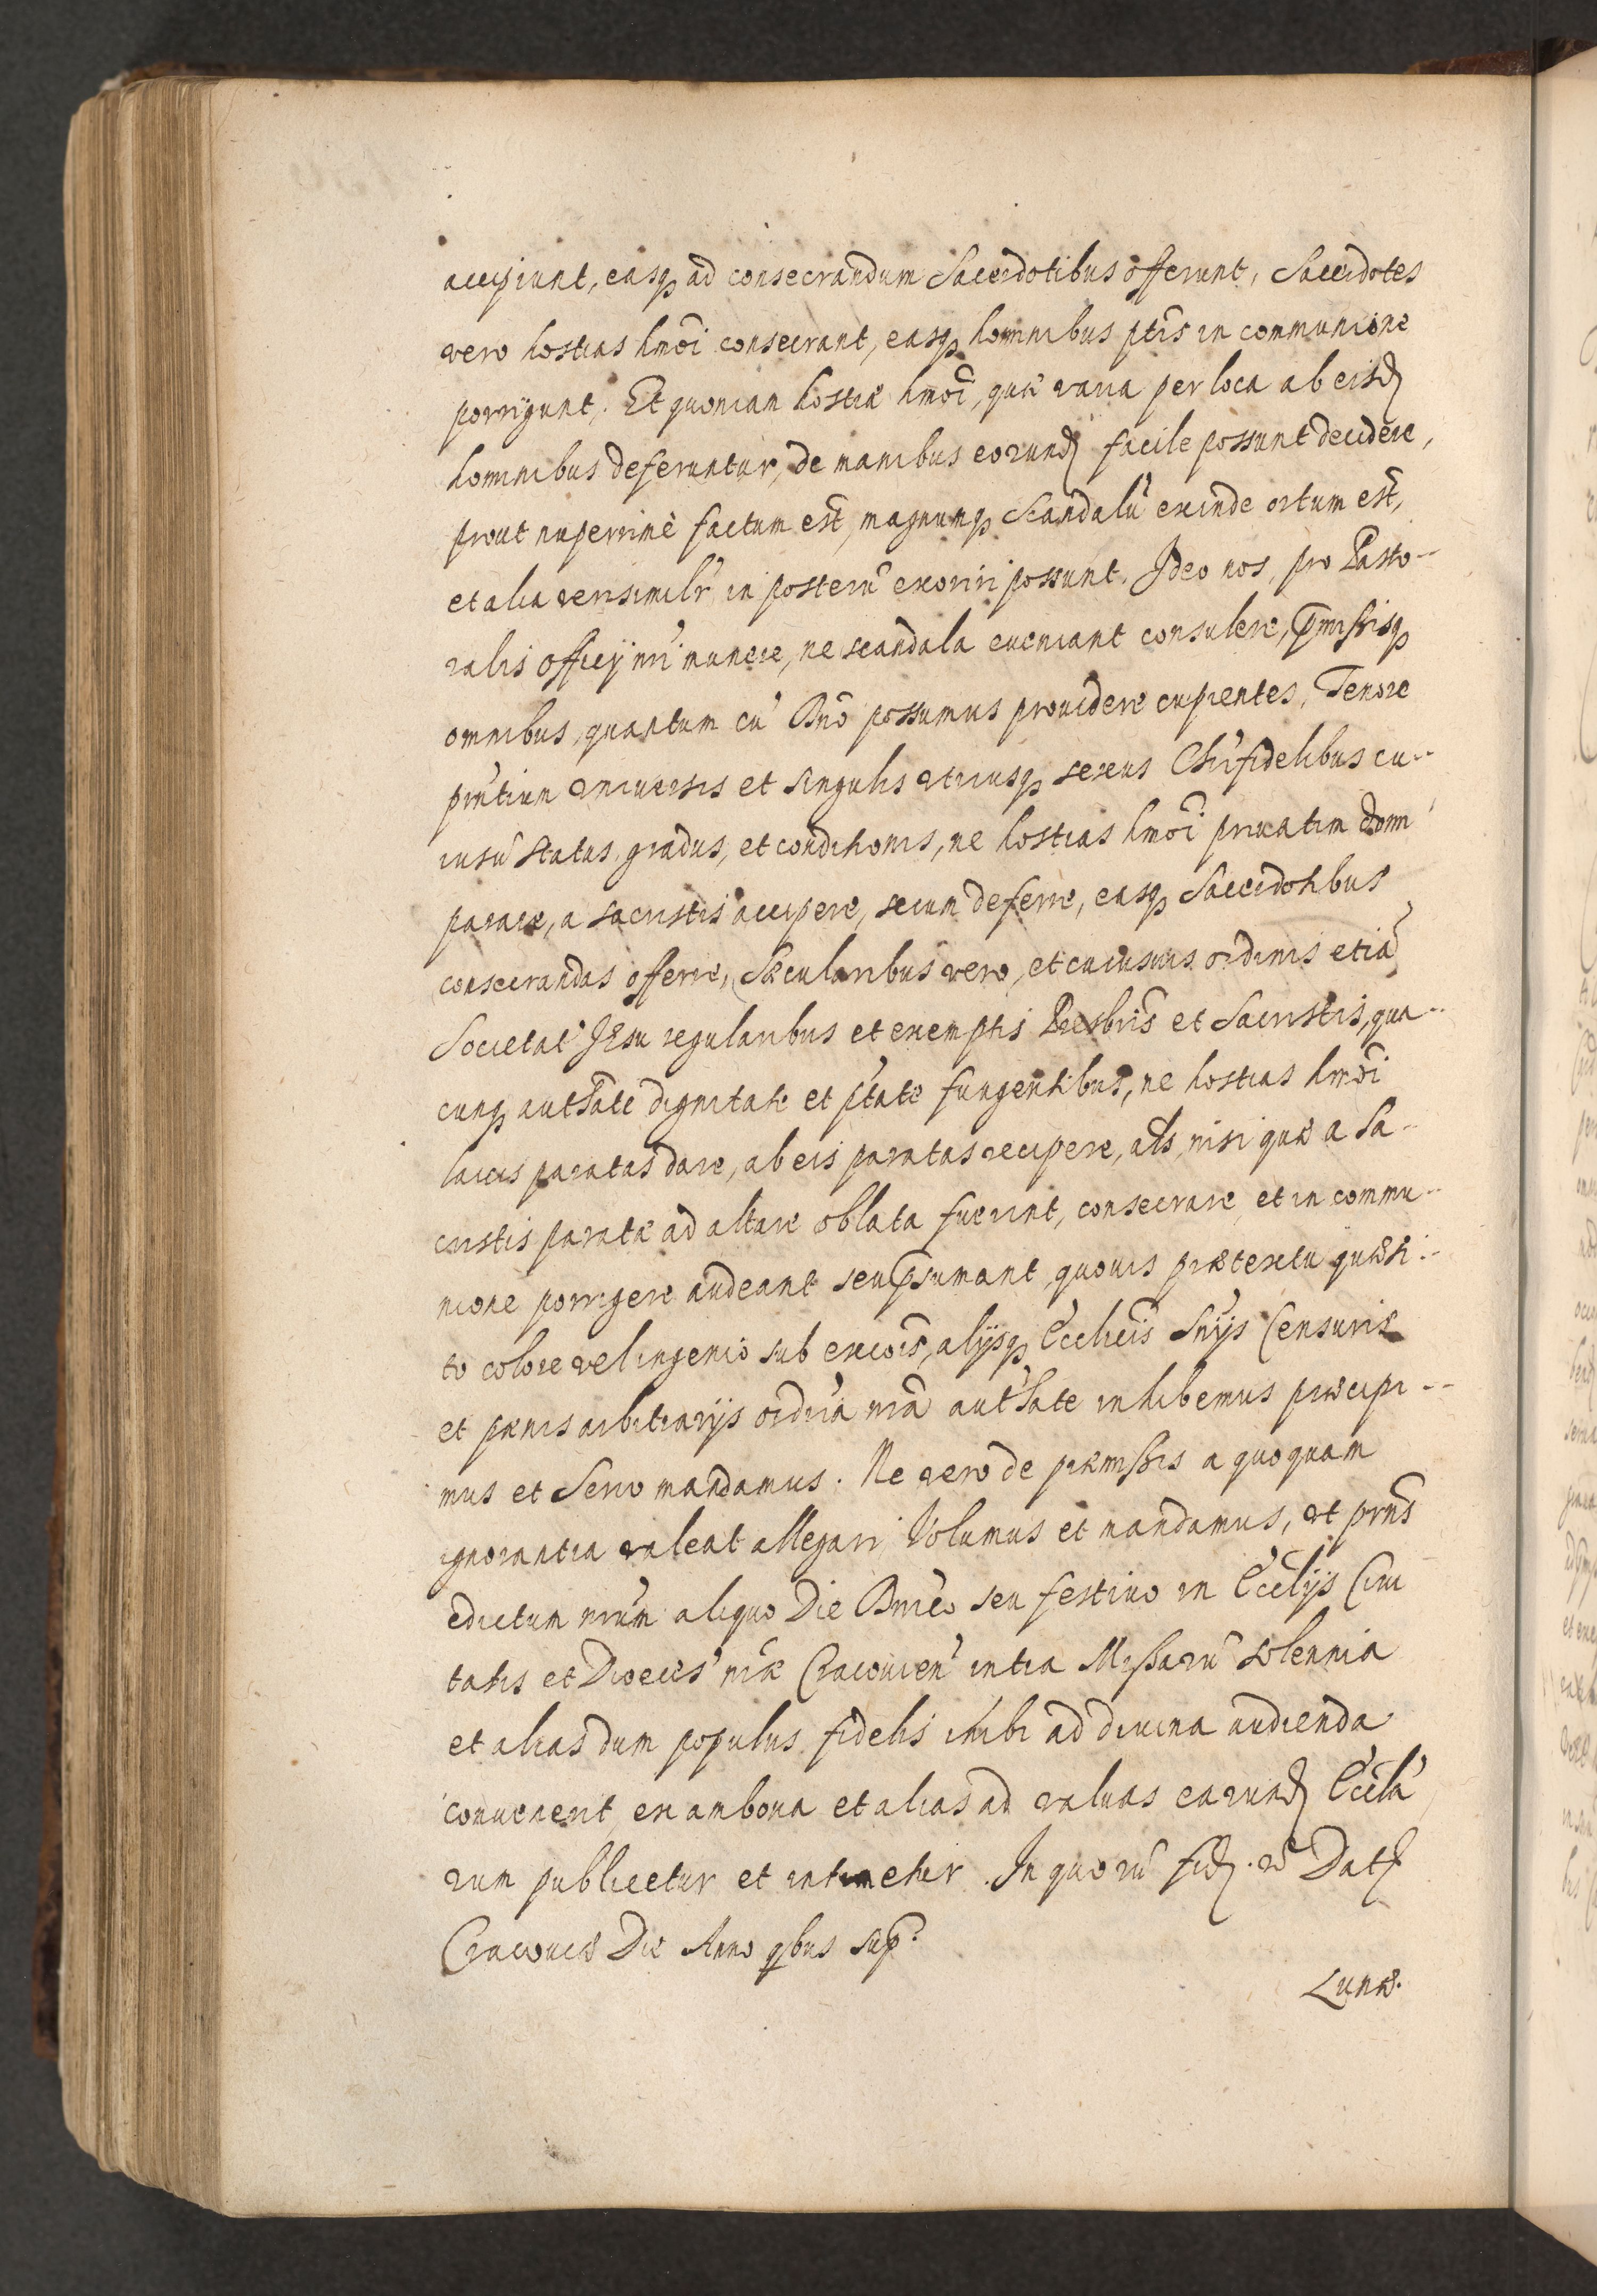 accipiunt, easq₃ ad consecrandum Sacerdotibus offerunt, Sacerdotes
vero hostias hmōi consecrant, easq₃ hominibus ptīs in communione
porrigunt. Et quoniam hostiæ hmōi, quæ varia per loca ab eisd
hominibus deferuntur, de manibus eorund facile possunt decidere,
prout nuperrimè factum est, magnumq₃ Scandalū exinde ortum est,
et alia verisimilr in posterū exoriri possunt. Ideo nos, pro Pasto-
ralis officij nri munere, ne scandala eveniant consulere, pmissisq₃
omnibus, quantum cū Dnō possumus providere cupientes, Tenore
pntium universis et singulis utriusq₃ sexus Chrifidelibus cu-
iusū status, gradus, et conditionis, ne hostias hmōi privatim domi
parare, a sacristis accipere, secum deferre, easq₃ Sacerdotibus
consecrandas offerre, Sæcularibus vero, et cuiusvis ordinis etiā
Societat JEsu regularibus et exemptis Presbris et Sacristis, qua-
cunq₃ authāte dignitate et ptāte fungentibus, ne hostias hmōi
laicis paratas dare, ab eis paratas recipere, als, nisi quæ a Sa-
cristis paratæ ad altare oblata fuerint, consecrare et in commu-
nione porrigere audeant seu psumant, quovis prætextu quæsi-
to colore vel ingenio sub excōis, alijsq₃ Ecclicīs Snijs Censuris
et pænis arbitrarijs ordria nrā authāte inhibemus præcipi-
mus et Serio mandamus. Ne vero de præmissis a quoquam
ignorantia valeat allegari Volumus et mandamus, ut prns
edictum nrum aliquo Die Dnico seu festivo in Ecclijs Civi
tatis et Dioeces nræ Cracovien intra Missarū solennia
et alias dum populus fidelis inibi ad divina audienda
convenerit ex ambona et alias ad valvas earund Eccla
rum publicetur et intimetur. In quorū fid. rē Dat
Cracoviæ Die Anno qbus sup.
Lunæ.